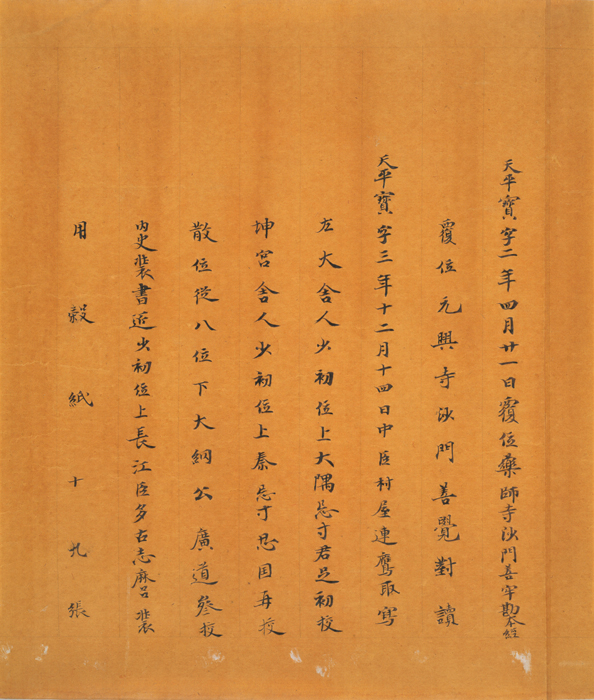 天平寳字二年四月廿一日覆位藥師寺沙門善牢勘本経
覆位元興寺沙門善覺對讀
天平寳字三年十二月十四日中臣村屋連鷹取寫
左大舎人少初位上大隅忌寸君足初挍
坤宮舎人少初位上秦忌寸忍国再挍
散位従八位下大網公廣道叄挍
内史裝書匠少初位上長江臣多古志麻呂裝
用穀紙十九張